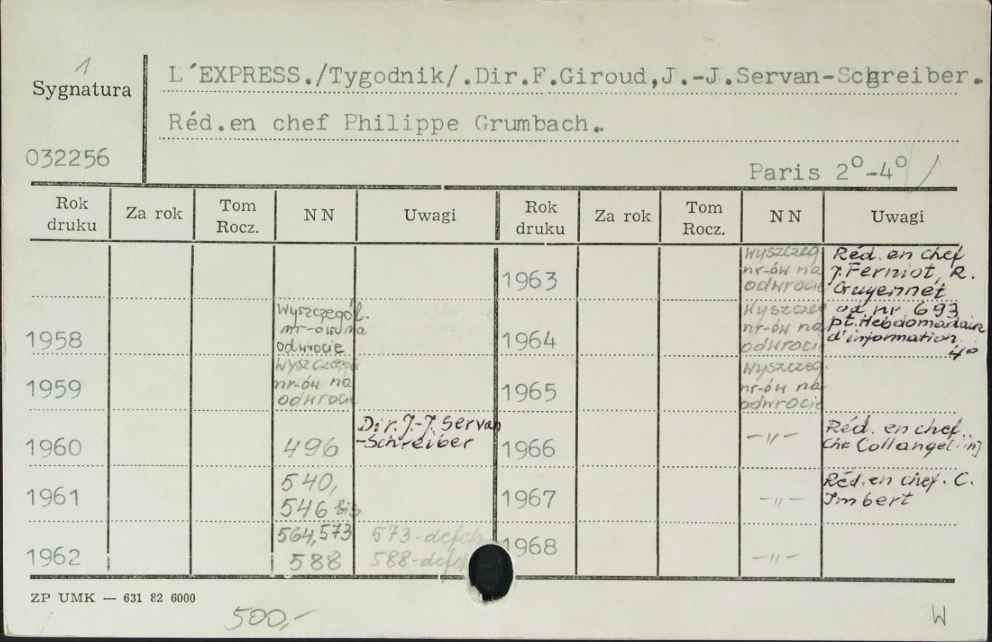 1
Sygnatura
L´EXPRESS./Tygodnik/.Dir.F.Giroud,J.-J.Servan-Schreiber.
Réd.en chef Philippe Grumbach.
032256
Paris 2°-4°
Rok druku Za rok Tom Rocz. NN Uwagi Rok druku Za rok Tom Rocz. NN Uwagi
1963 Wyszczeg nr-ów na odwrocie Réd. en chef J. Ferniot, R. Guyennet
1958 Wyszczegól. nr-ów na odwrocie
1964 Wyszczeg nr-ów na odwrocie od nr 693 pt. Hebdomadaire d'information 4°
1959 Wyszczegól nr-ów na odwrocie
1965 Wyszczeg. nr-ów na odwrocie
1960 496 Dir. J.-J. Servan-Schreiber
1966 -"- Réd. en chef. Collange
1961 540, 546 bis
1967 -"- Réd. en chef. C. Imbert
1962 564, 573 588 573-defekt 588-defekt
1968 -"-
ZP UMK — 631 82 6000
500,-
W